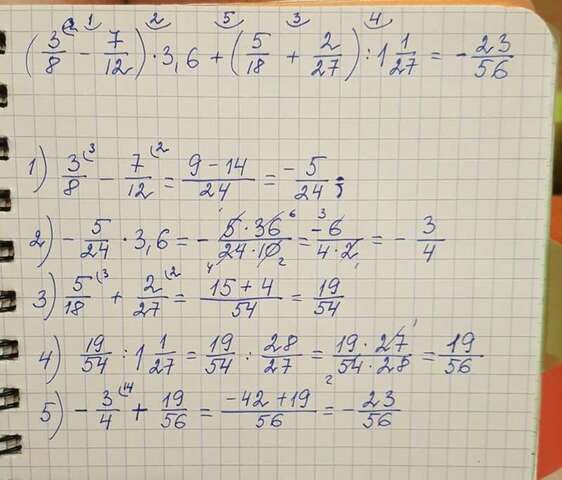 1 2 5 3 4
(3/8 - 7/12) · 3,6 + (5/18 + 2/27) : 1 1/27 = - 23/56
1) 3/8 (3 - 7/12 (2 = (9 - 14)/24 = - 5/24 ;
2) - 5/24 · 3,6 = - (5 · 36)/(24 · 10) = (-6)/(4 · 2) = - 3/4
3) 5/18 (3 + 2/27 (2 = (15 + 4)/54 = 19/54
4) 19/54 : 1 1/27 = 19/54 : 28/27 = (19 · 27)/(54 · 28) = 19/56
5) - 3/4 (14 + 19/56 = (-42 + 19)/56 = - 23/56